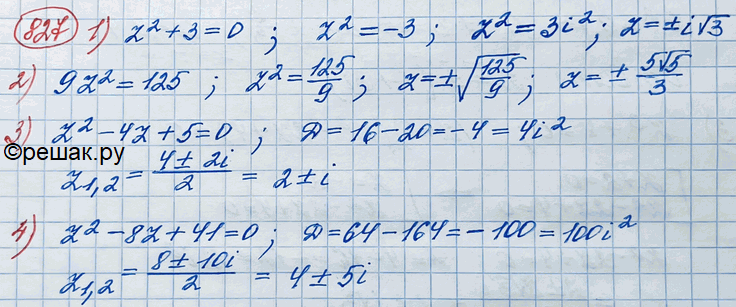 827 1) z² + 3 = 0 ; z² = -3 ; z² = 3i² ; z = ± i√3
2) 9z² = 125 ; z² = 125/9 ; z = ±√(125/9) ; z = ± 5√5/3
3) z² - 4z + 5 = 0 ; D = 16 - 20 = -4 = 4i²
©решак.ру
z₁,₂ = (4 ± 2i)/2 = 2 ± i
4) z² - 8z + 41 = 0 ; D = 64 - 164 = -100 = 100i²
z₁,₂ = (8 ± 10i)/2 = 4 ± 5i